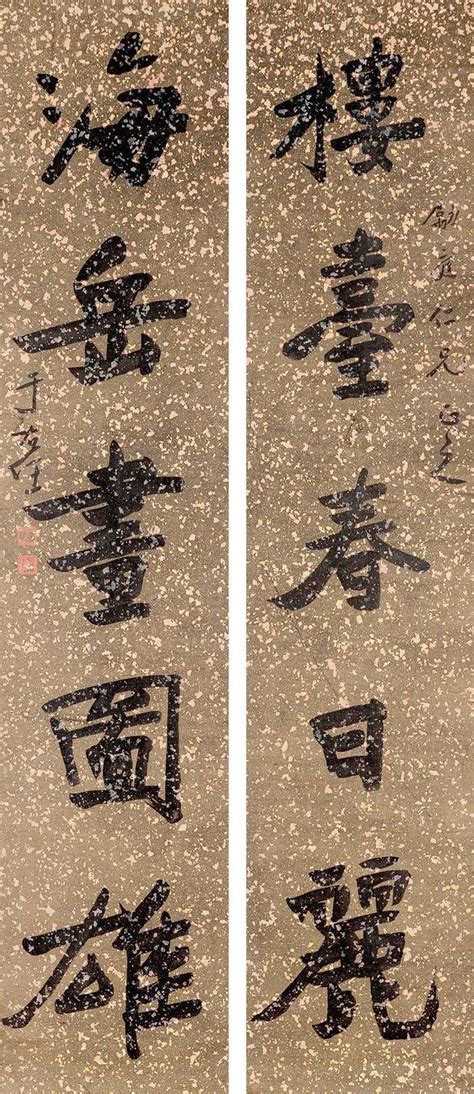 樓臺春日麗
庭仁兄 正之
海岳畫圖雄
于右任